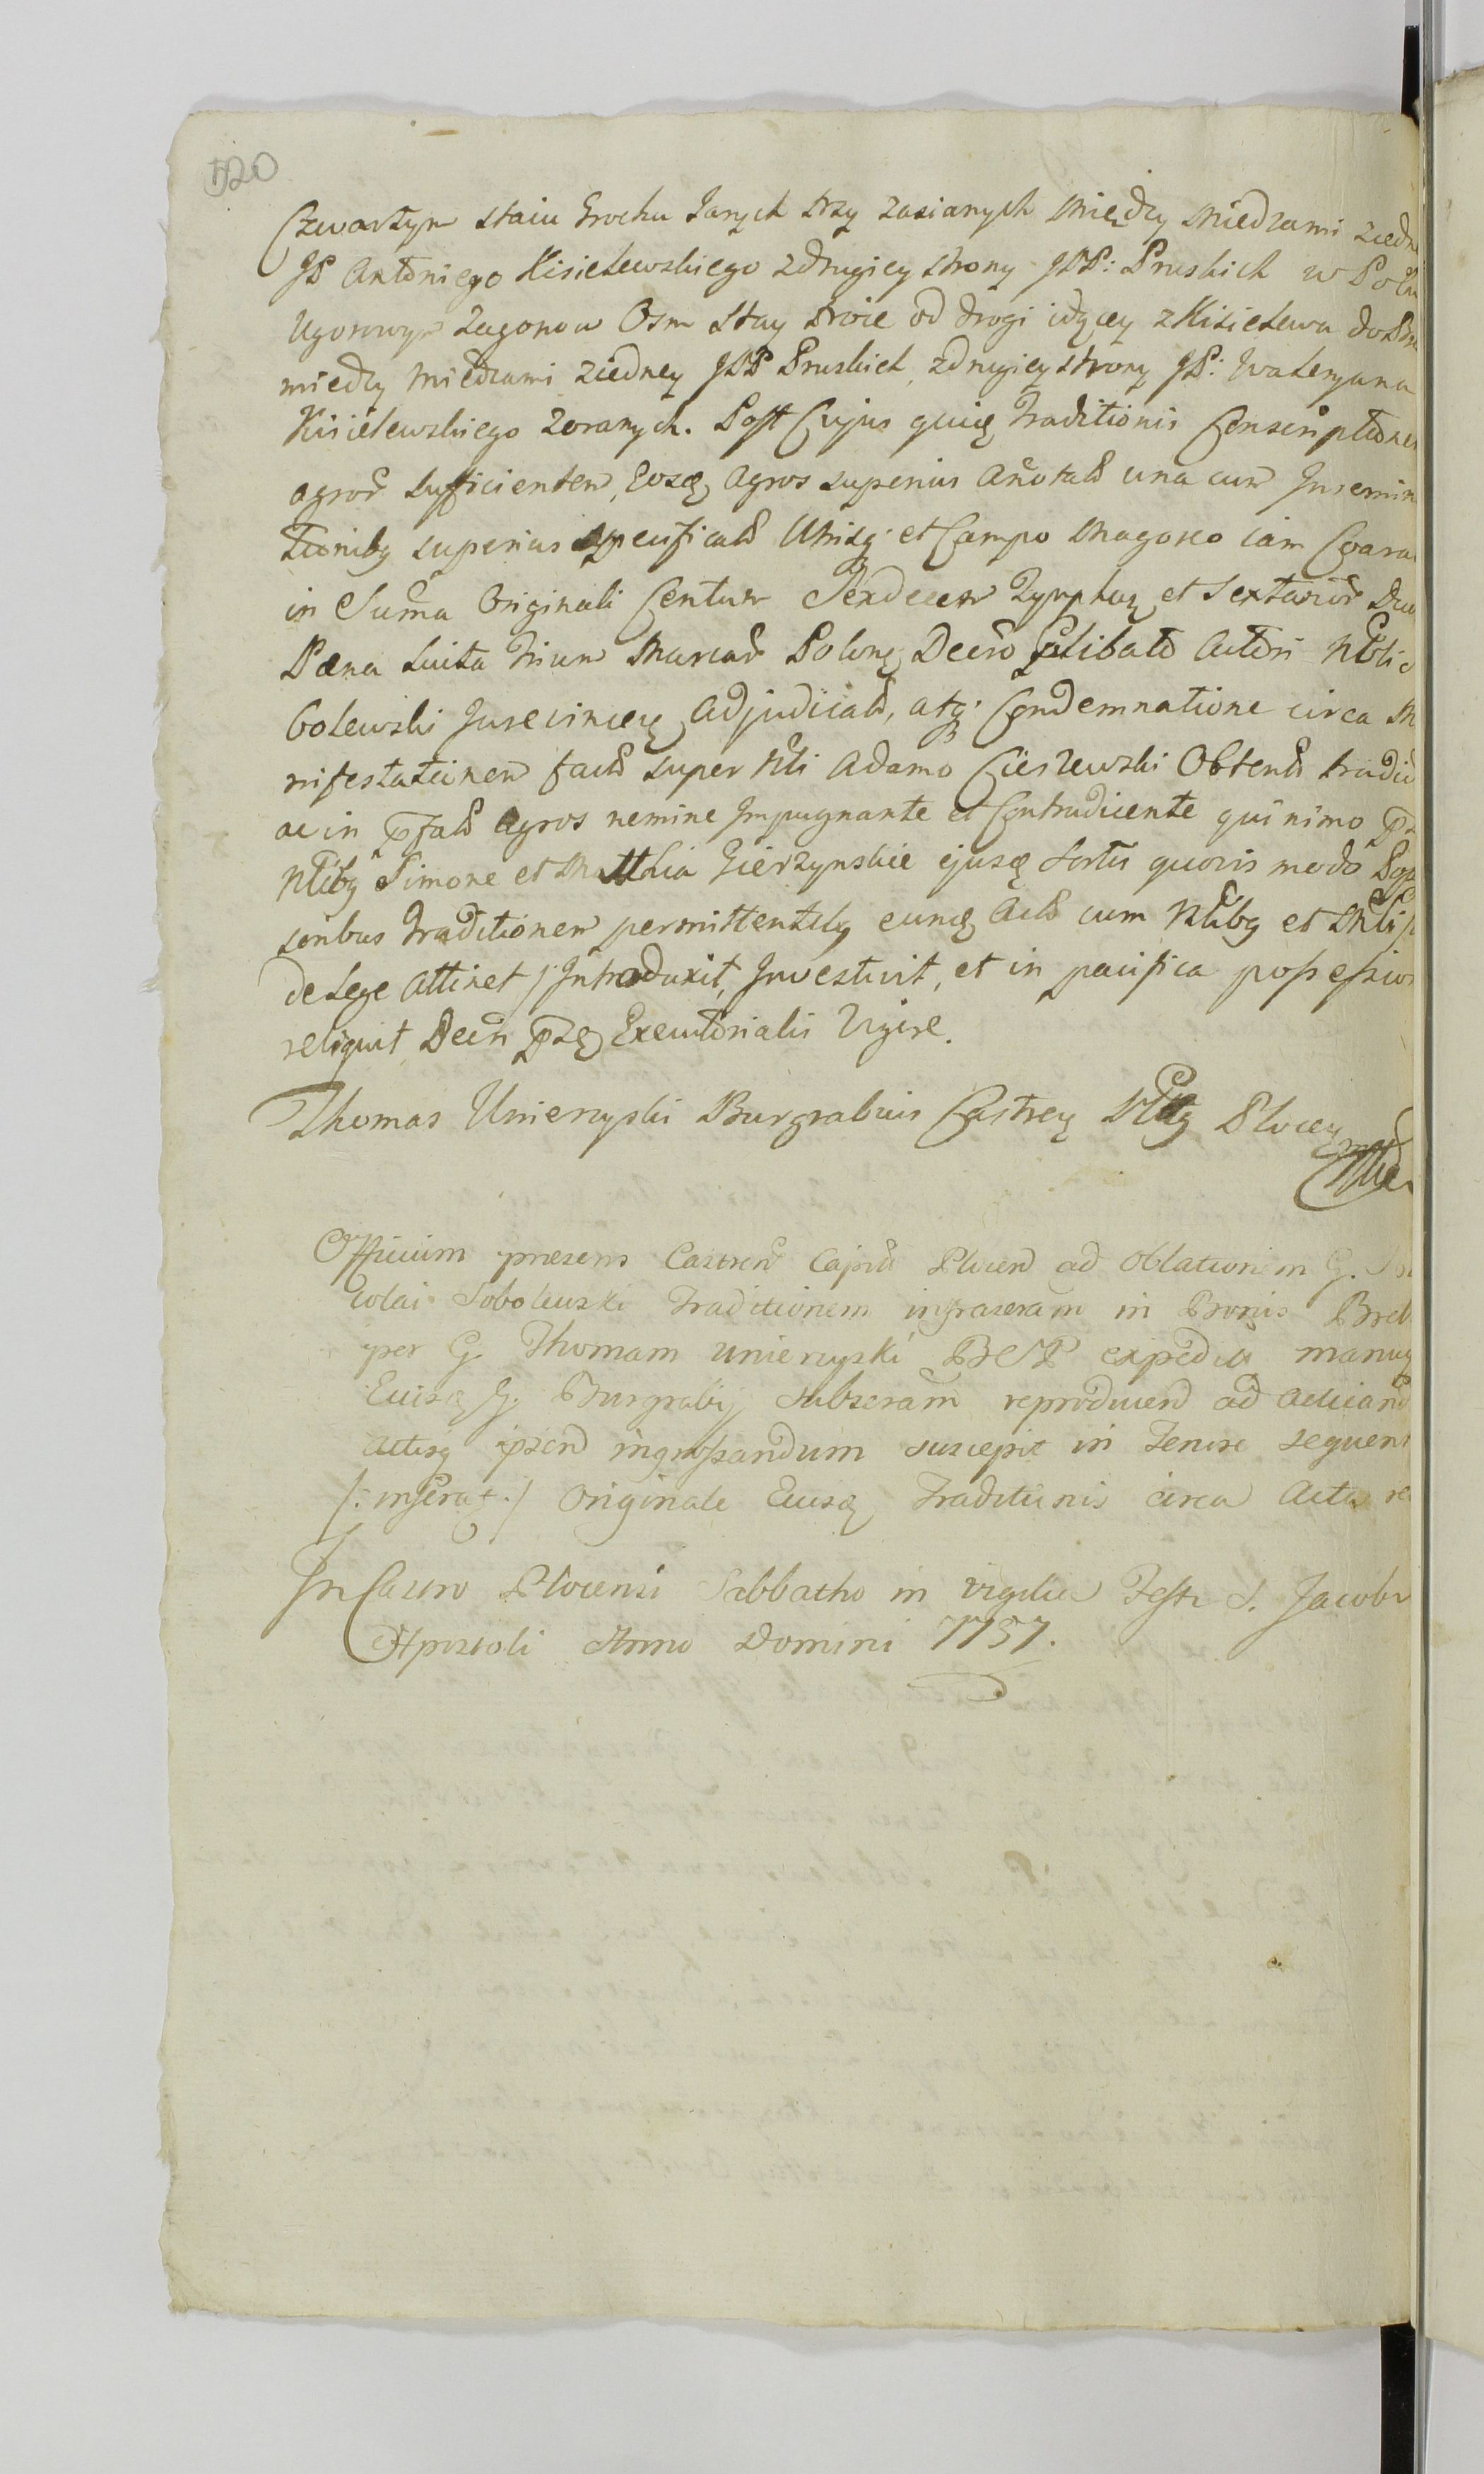 520
Czwartym staiu Grochu Jarych trzy zasianych między miedzami ziedn
JP Antoniego Kisielewskiego zdrugiey strony JPP: Pruskich w Polu
Ugorowym Zagonow Osm Stay troie od drogi idącey z Kisielewa do
miedzy miedzami ziedney JPP Pruskich, zdrugiey strony JP: Waleryana
Kisielewskiego zoranych. Post Cujus quidę Traditionis Conscriptionem
agror sufficientem, Eosdę Agros superius Anotatos una cum Insemin
tionibg superius specificatis Unisq et Campo Magoso iam
in Suma Originali Centum Sexdecem Tympharg et Sextarior Duo
Pæna Luita trium Marcar Poloną Decro plibato Actori Nbli
Golewski Jurevincere Adjudicats, atq Condemnatione circa Ma
nifestationem facts super Nbli Adamo Cieszewski Obtents tradid
ac in pfats agros nemine Impugnante et Contradicente quinimo
Nblibg Simone et Matthia Gierzynskie ejusdę Sortis quovis modo
soribus Traditionem permittentibg eundę Acts cum Nblibg et
de Lege attinet / Introduxit, Investivit, et in pacifica possession
reliquit Decri ptis Executorialis Vigore.
Thomas Unierzyski Burgrabius Castreń Plocen
Officium præsens Castreń Capit Plocen ad Oblationem G.
colai Sobolewski Traditionem infrascram in Bonis
per G Thomam Unierzyski BCP expedit manuq
Eiusdę G. Burgrabij Subscram reproducend ad Acticand
Actisq ipsend ingrossandum suscepit in Tenore sequent
/: inserat :/ Originale Eiusdę Traditionis circa Acta re
In Castro Plocensi Sabbatho in vigilia Festi S. Jacobi
Apostoli Anno Domini 1757.